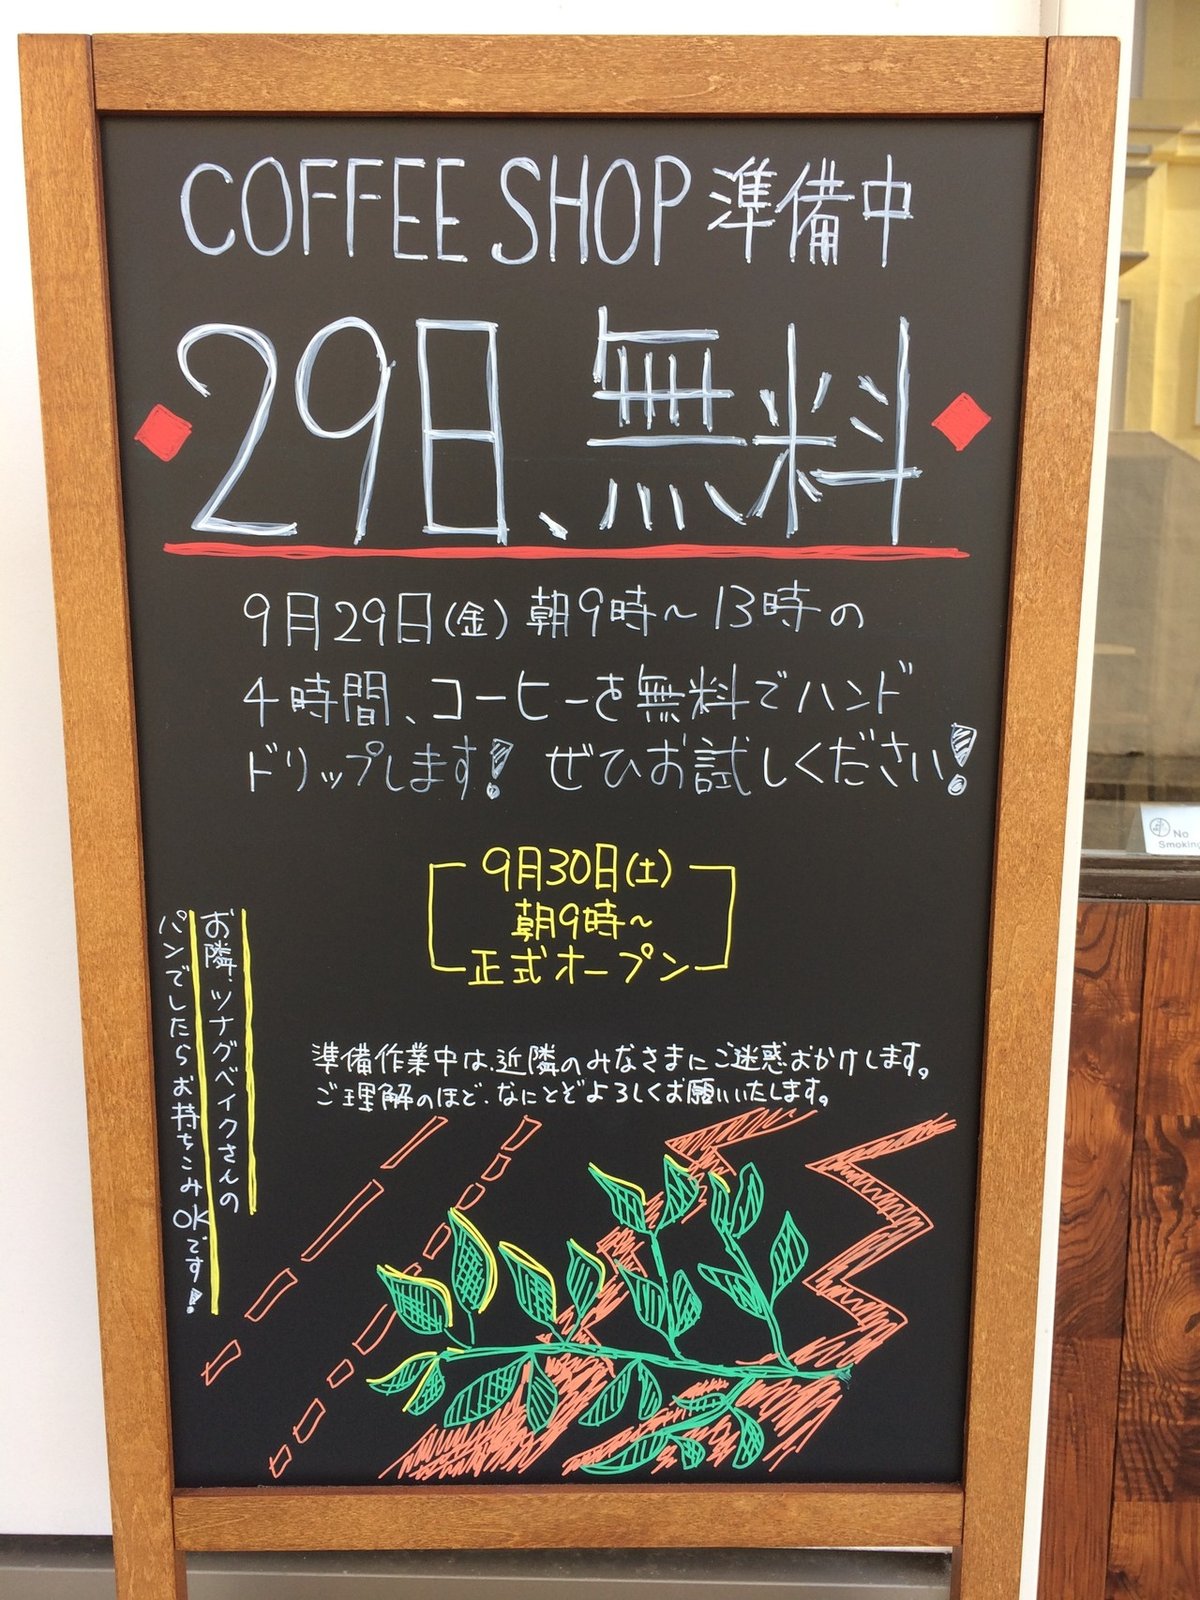 COFFEE SHOP 準備中
29日、無料
9月29日(金) 朝9時～13時の
4時間、コーヒーを無料でハンド
ドリップします! ぜひお試しください!
9月30日(土)
朝9時～
正式オープン
お隣、ツナグベイクさんの
パンでしたらお持ちこみOKです!
準備作業中は、近隣のみなさまにご迷惑おかけします。
ご理解のほど、なにとぞよろしくお願いいたします。
No
Smoking